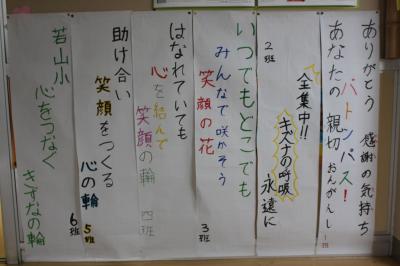 ありがとう 感謝の気持ち
バトンパス!
あなたの 親切 おんがえし 1班
2班
全集中!!
キズナの呼吸
永遠に
いつでもどこでも
みんなで咲かそう
笑顔の花
3班
はなれていても
心を結んで
笑顔の輪 四班
助け合い
笑顔をつくる
心の輪
5班
若山小
心をつなぐ
きずなの輪
6班